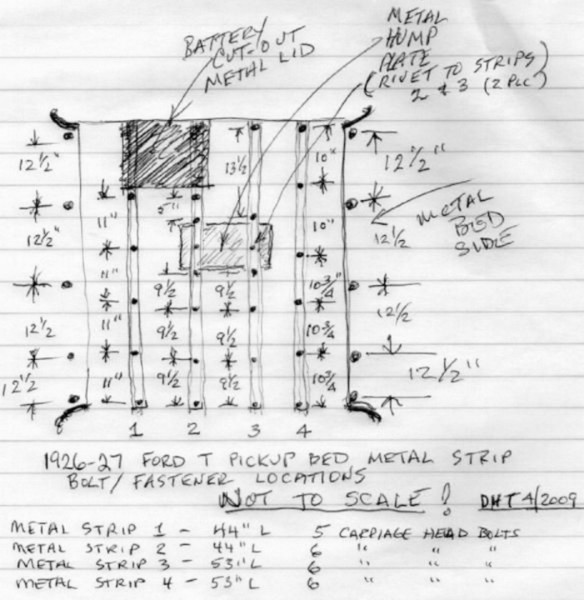 BATTERY
CUT-OUT
METAL LID
METAL
HUMP
PLATE
(RIVET TO STRIPS)
2 & 3 (2 PLC)
12 1/2" 13 1/2 10" 12 1/2"
METAL
BED
SIDE
12 1/2" 11" 5" 10" 12 1/2
11" 9 1/2 9 1/2 10 3/4"
12 1/2 11" 9 1/2 9 1/2 10 3/4 12 1/2
12 1/2 11" 9 1/2 9 1/2 10 3/4 12 1/2"
1 2 3 4
1926-27 FORD T PICKUP BED METAL STRIP
BOLT/FASTENER LOCATIONS
NOT TO SCALE! DHT 4/2009
METAL STRIP 1 - 44" L 5 CARRIAGE HEAD BOLTS
METAL STRIP 2 - 44" L 6 " " "
METAL STRIP 3 - 53" L 6 " " "
METAL STRIP 4 - 53" L 6 " " "